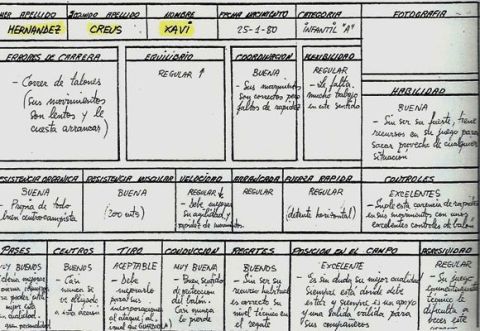 APELLIDO SEGUNDO APELLIDO NOMBRE FECHA NACIMIENTO CATEGORIA FOTOGRAFIA
HERNANDEZ CREUS XAVI 25-1-80 INFANTIL "A"
ERRORES DE CARRERA
- Correr de talones
(sus movimientos
son lentos y le
cuesta arrancar)
EQUILIBRIO
REGULAR ↑
COORDINACION
BUENA
- Sus movimientos
son correctos pero
faltos de rapidez
FLEXIBILIDAD
REGULAR
- Le falta
mucho trabajo
en este sentido
HABILIDAD
BUENA
- Sin ser su fuerte, tiene
recursos en su juego para
sacar provecho de cualquier
situación
RESISTENCIA ORGANICA
BUENA
- Propia de todo
buen centrocampista
RESISTENCIA MUSCULAR
BUENA
(200 mts)
VELOCIDAD
REGULAR ↓
- Debe mejorar
su agilidad y
rapidez de movimientos.
ARRANCADA
REGULAR
FUERZA RAPIDA
REGULAR
(detente horizontal)
CONTROLES
EXCELENTES
- Suple esta carencia de rapidez
en sus movimientos con unos
excelentes controles de balón
PASES
MUY BUENOS
CENTROS
BUENOS
- Casi
nunca se
TIRO
ACEPTABLE
- Debe
mejorarlo
para sus
al igual que GUARDIOLA
CONDUCCION
MUY BUENA
- Buen sentido
de protección
del balón.
Casi nunca
lo pierde
REGATES
BUENOS
- Sin ser su
recurso habitual
es correcto su
nivel técnico en
el regate
POSICION EN EL CAMPO
EXCELENTE
- Es sin duda su mejor cualidad
siempre está donde debe
estar y siempre es un apoyo
y una salida válida, para
sus compañeros
AGRESIVIDAD
REGULAR
- Su juego
técnico le
dificulta a
veces este